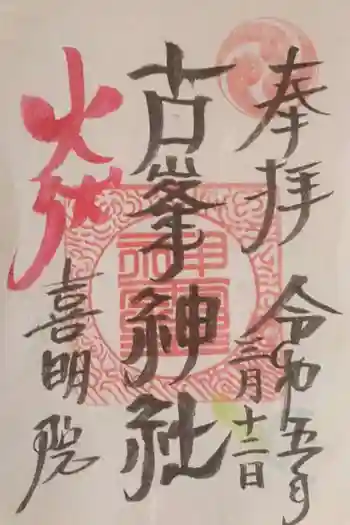 奉拝
令和五年
三月十二日
古峯神社
火
喜明院